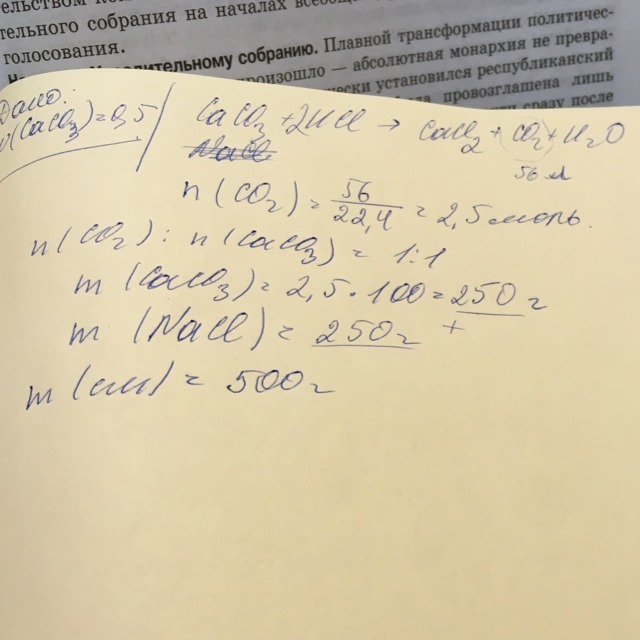 тельного собрания на началах
голосования.
дительному собранию. Плавной трансформации политичес-
произошло — абсолютная монархия не превра-
чески установился республиканский
провозглашена лишь
сразу после
Дано:
(CaCO₃)=0,5
CaCO₃ + 2HCl → CaCl₂ + CO₂ + H₂O
NaCl
56 л
n (CO₂) = 56/22,4 = 2,5 моль.
n (CO₂) : n (CaCO₃) = 1:1
m (CaCO₃) = 2,5 · 100 = 250 г
m (NaCl) = 250 г +
m (см) = 500 г